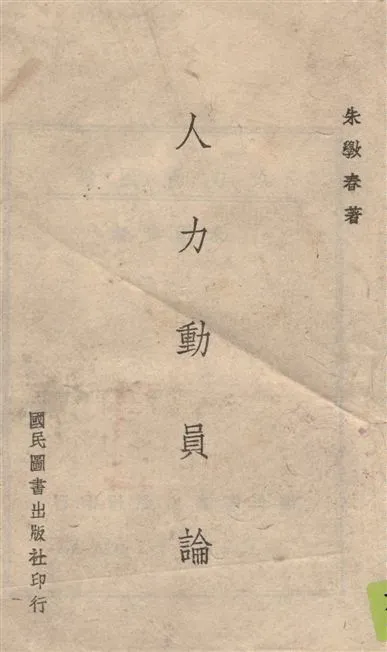 朱斆春著
人力動員論
國民圖書出版社印行